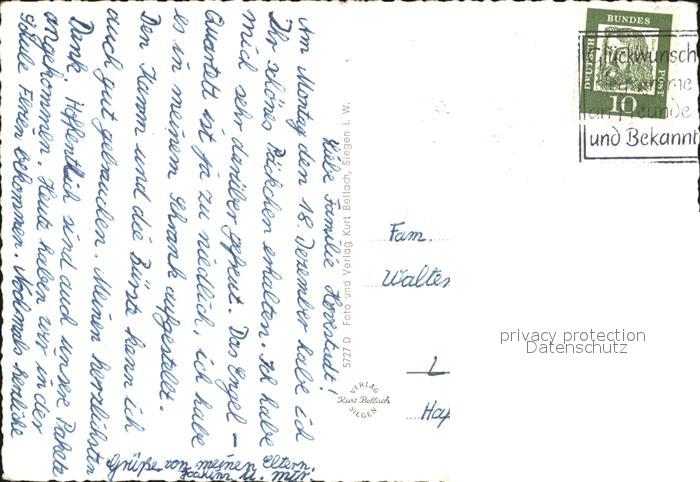 Liebe Familie Horestadt!
Am Montag den 18. Dezember habe ich
Ihr schönes Päckchen erhalten. Ich habe
mich sehr darüber gefreut. Das Engel –
Quartett ist ja zu niedlich, ich habe
es in meinem Schrank aufgestellt.
Den Kamm und die Bürste kann ich
auch gut gebrauchen. Meinen herzlichsten
Dank. Hoffentlich sind auch unsere Pakete
angekommen. Heute haben wir in der
Schule Ferien bekommen. Nochmals herzliche
Grüße von meinen Eltern.
u. mir
5727 D Foto und Verlag Kurt Bellach, Siegen i. W.
VERLAG
Kurt Bellach
SIEGEN
BUNDES
DEUTSCHE
POST
10
Glückwunsch
an Freunde
und Bekannt
Fam.
Walter
L
Hap
privacy protection
Datenschutz